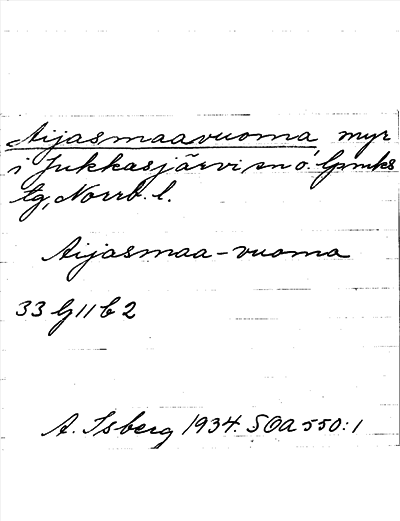 Aijasmaavuoma myr
i Jukkasjärvi sn o. lpmks
tg, Norrb. l.
Aijasmaa-vuoma
33 G 11 b 2
A. Isberg 1934. SOA 550:1